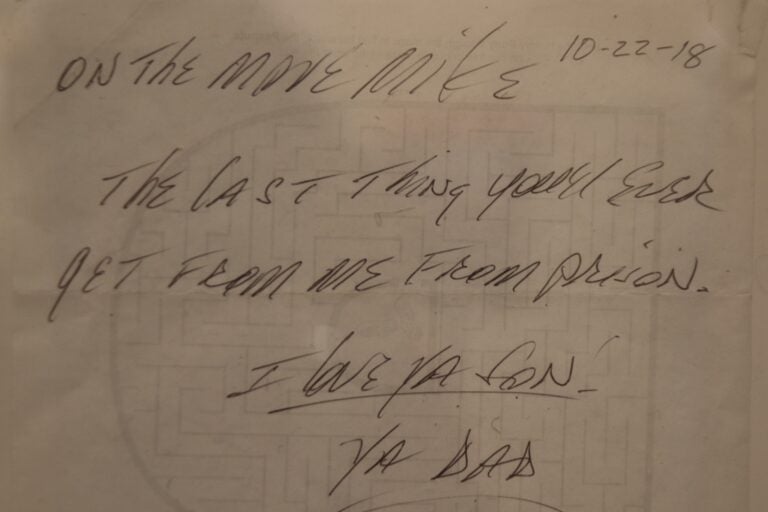 ON The MOVE MIKE 10-22-18
The LAST Thing you'll EVER
gET FROM ME FROM PRISON.
I lOVE YA SON!
YA DAD